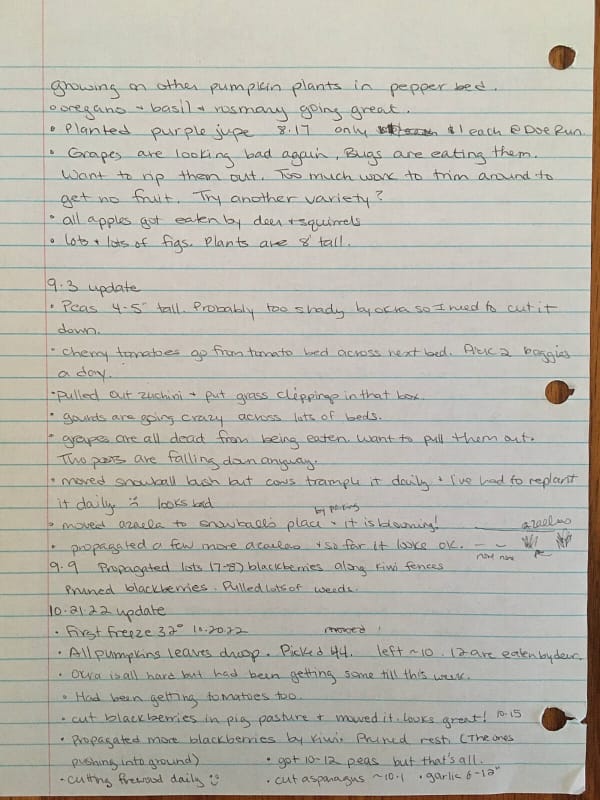 growing on other pumpkin plants in pepper bed.
• oregano + basil + rosmary going great.
• Planted purple jupe 8.17 only $1 each @ Doe Run
• Grapes are looking bad again, Bugs are eating them.
Want to rip them out. Too much work to trim around to
get no fruit. Try another variety?
• all apples got eaten by deer + squirrels
• lots + lots of figs. Plants are 8' tall.
9.3 update
• Peas 4-5" tall. Probably too shady by okra so I need to cut it
down.
• cherry tomatoes go from tomato bed across next bed. Pick 2 baggies
a day.
• pulled out zuchini + put grass clippings in that box.
• gourds are going crazy across lots of beds.
• grapes are all dead from being eaten. Want to pull them out.
Two posts are falling down anyway.
• moved snowball bush but cows trample it daily + I've had to replant
it daily :( looks bad
by parking
• moved azaela to snowball's place + it is blooming! azaelas
• propagated a few more azaelas + so far it looks ok. new new
9.9 Propagated lots (7-8) blackberries along kiwi fences
Pruned blackberries. Pulled lots of weeds.
10.21.22 update
• First freeze 32° 10.20.22
• All pumpkins leaves droop. Picked 44. left ~10. 12 are eaten by deer.
• Okra is all hard but had been getting some till this week.
• Had been getting tomatoes too.
• cut blackberries in pig pasture + mowed it. looks great! 10.15
• Propagated more blackberries by kiwi. Pruned rest. (The ones
pushing into ground) • got 10-12 peas but that's all.
• cutting firewood daily :) • cut asparagus ~10.1 • garlic 6-12"